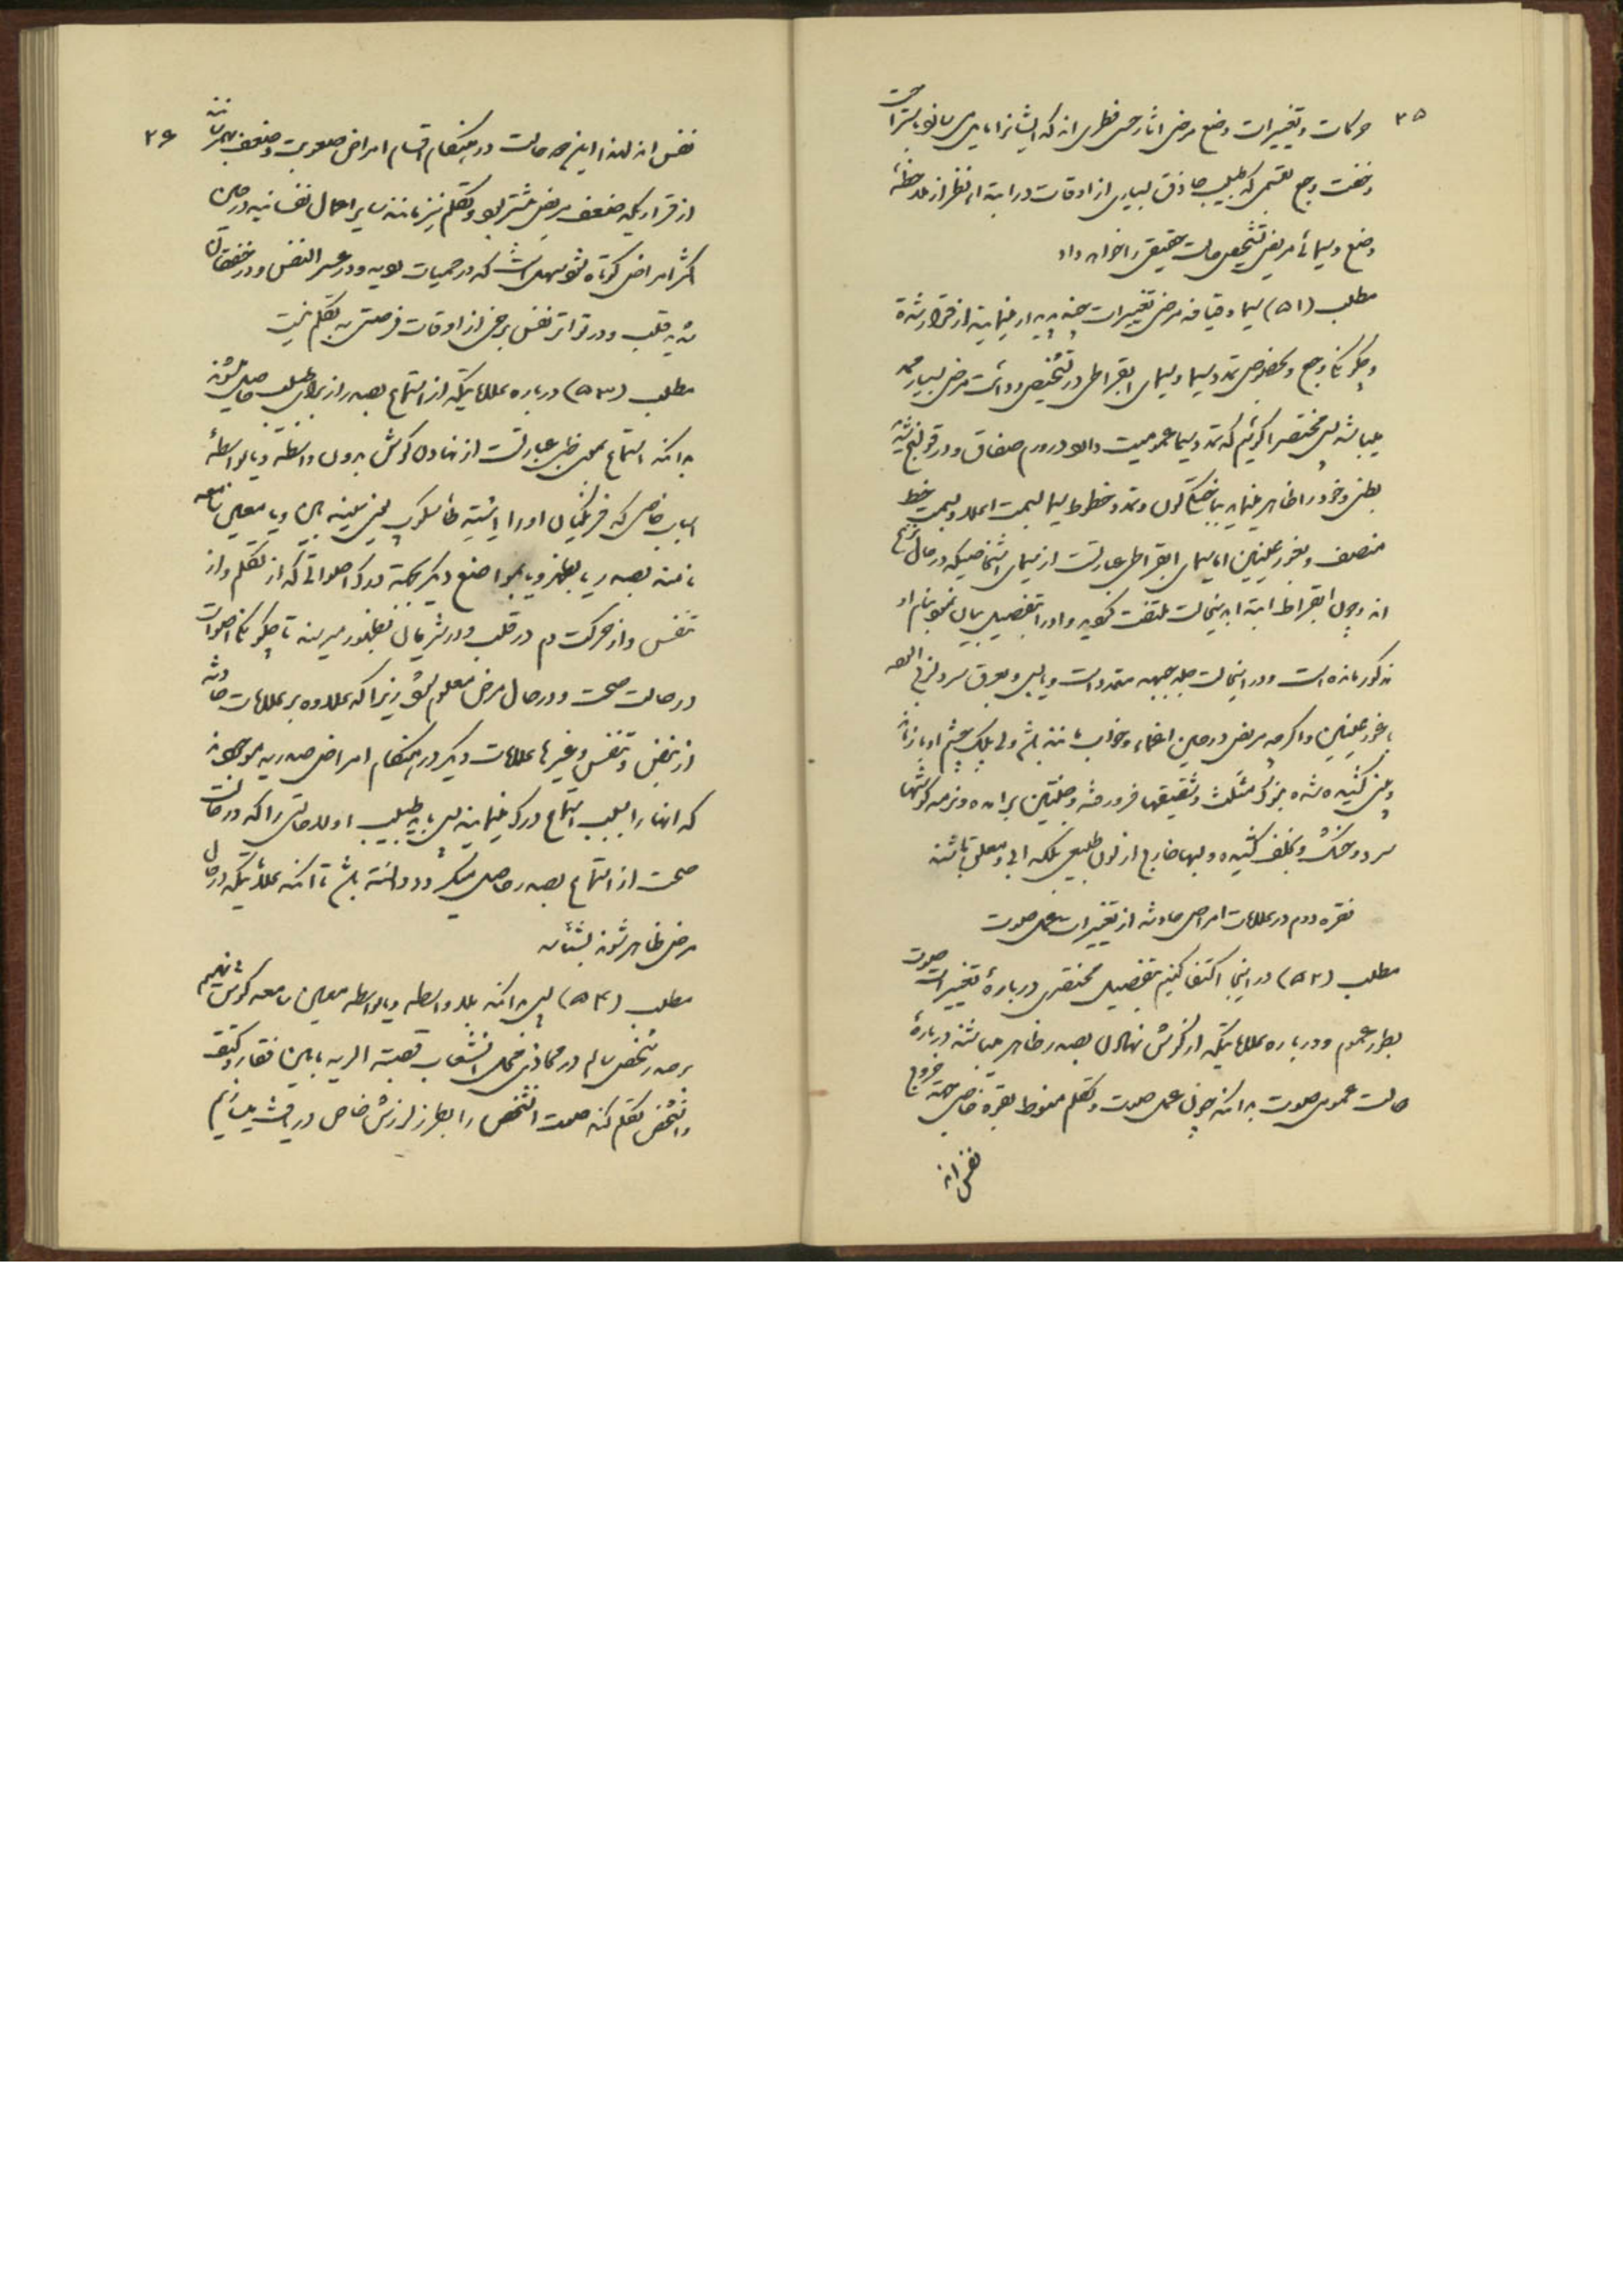 ۲۵
حرکات و تغییرات وضع مرضی اثار حس فطری اند که ایشانرا
وخفت وجع بقسمی که طبیب حاذق بسیاری از اوقات در ابتدا از نظر از ملاحظهٔ
وضع وسیمای مریض تشخیص حالت حقیقی را خواهد داد
مطلب (۵۱) سیما و قیافه مرضی تغییرات چند پدیدار مینمایند از قرار شدة
وچگونگی وجع و بخصوص تمدد سیما وسیمای ابقراطی در تشخیص ورائت مرض بسیار ممد
میباشد پس مختصرا گوئیم که تمدد سیما عمومیت دارد در ورم صفاق و در قولنج
بطنی و خود را ظاهر مینماید با خستگی لون و تمدد خطوط سیما بسمت اعلا و بسمت خط
منصف و بغور عینین اما سیمای ابقراطی عبارتست از سیمای اشخاصیکه در حال نزع
اند و چون ابقراط ابتدا بدینحالت ملتفت گردید و او را بتفصیل بیان نمود بنام او
مذکور مانده است و در اینحالت جلد جبهه متمدد است و یابس و بعرق سرد لزج
با غور عینین و اگرچه مریض در حین اغماء و خواب مانند باشد ولی پلک چشم او باز باشد
وبینی کشیده شده بنوک مثلث و شقیقها فرو رفته و وجنتین برامده و نرمه گوشها
سرد و خشک و بخلف کشیده و لبها خارج از لون طبیعی بلکه ابی و معلق باشند
فقره دوم در علامات امراض حادثه از تغییرات عمل صوت
مطلب (۵۲) در اینجا اکتفا کنیم بتفصیل مختصری دربارهٔ تغییرات صوت
بطور عموم و درباره علاماتیکه از گوش نهادن بصدر ظاهر میباشند دربارهٔ
حالت عمومی صوت بدانکه چون عمل صوت و تکلم منوط بقرع خاص جهة خروج
نفس اند
۲۶
نفس اند لهذا این دو حالت در هنگام اقسام امراض صعوبت و ضعف بهم رسانند
از قراریکه ضعف مریض مشتر بود و تکلم نیز مانند سایر اعمال نفسانیه در حین
اکثر امراض کوتاه شود بهمین است که در حمیات وبیه و در عسر النفس و در خفقان
شدید قلب و در تواتر نفس برخی از اوقات فرصتی به تکلم نیست
مطلب (۵۳) درباره علاماتیکه از استماع بصدر از برای طبیب حاصل شوند
بدانکه استماع بمعنی طبی عبارتست از نهادن گوش بدون واسطه و یا بواسطهٔ
اسباب خاصی که فرنگیان او را استیته طاسکوب یعنی سینه بین و یا معین سامعه
نامند بصدر یا بظهر و یا بمواضع دیگر بجهة درک اصواتی که از تکلم و از
تنفس و از حرکت دم در قلب و در شریان بظهور میرسند تا چگونگی اصوات
در حالت صحت و در حال مرض معلوم شود زیرا که علاوه بر علامات حادثه
از نبض و تنفس و غیرها علامات دیگر در هنگام امراض صدریه موجودند
که انها را بسبب استماع درک مینمایند پس باید طبیب اولا حالتی را که در حالت
صحت از استماع بصدر حاصل میگردد دانسته باشد تا انکه علاماتیکه در حال
مرض ظاهر شوند بشناسد
مطلب (۵۴) پس بدانکه بلا واسطه و یا بواسطه معین سامعه گوش نهیم
برصدر شخص سالم در محاذی محل انشعاب قصبة الریه مابین فقار و کتف
و انشخص تکلم کند صوت انشخص را بطرز لرزش خاص دریافت نمائیم